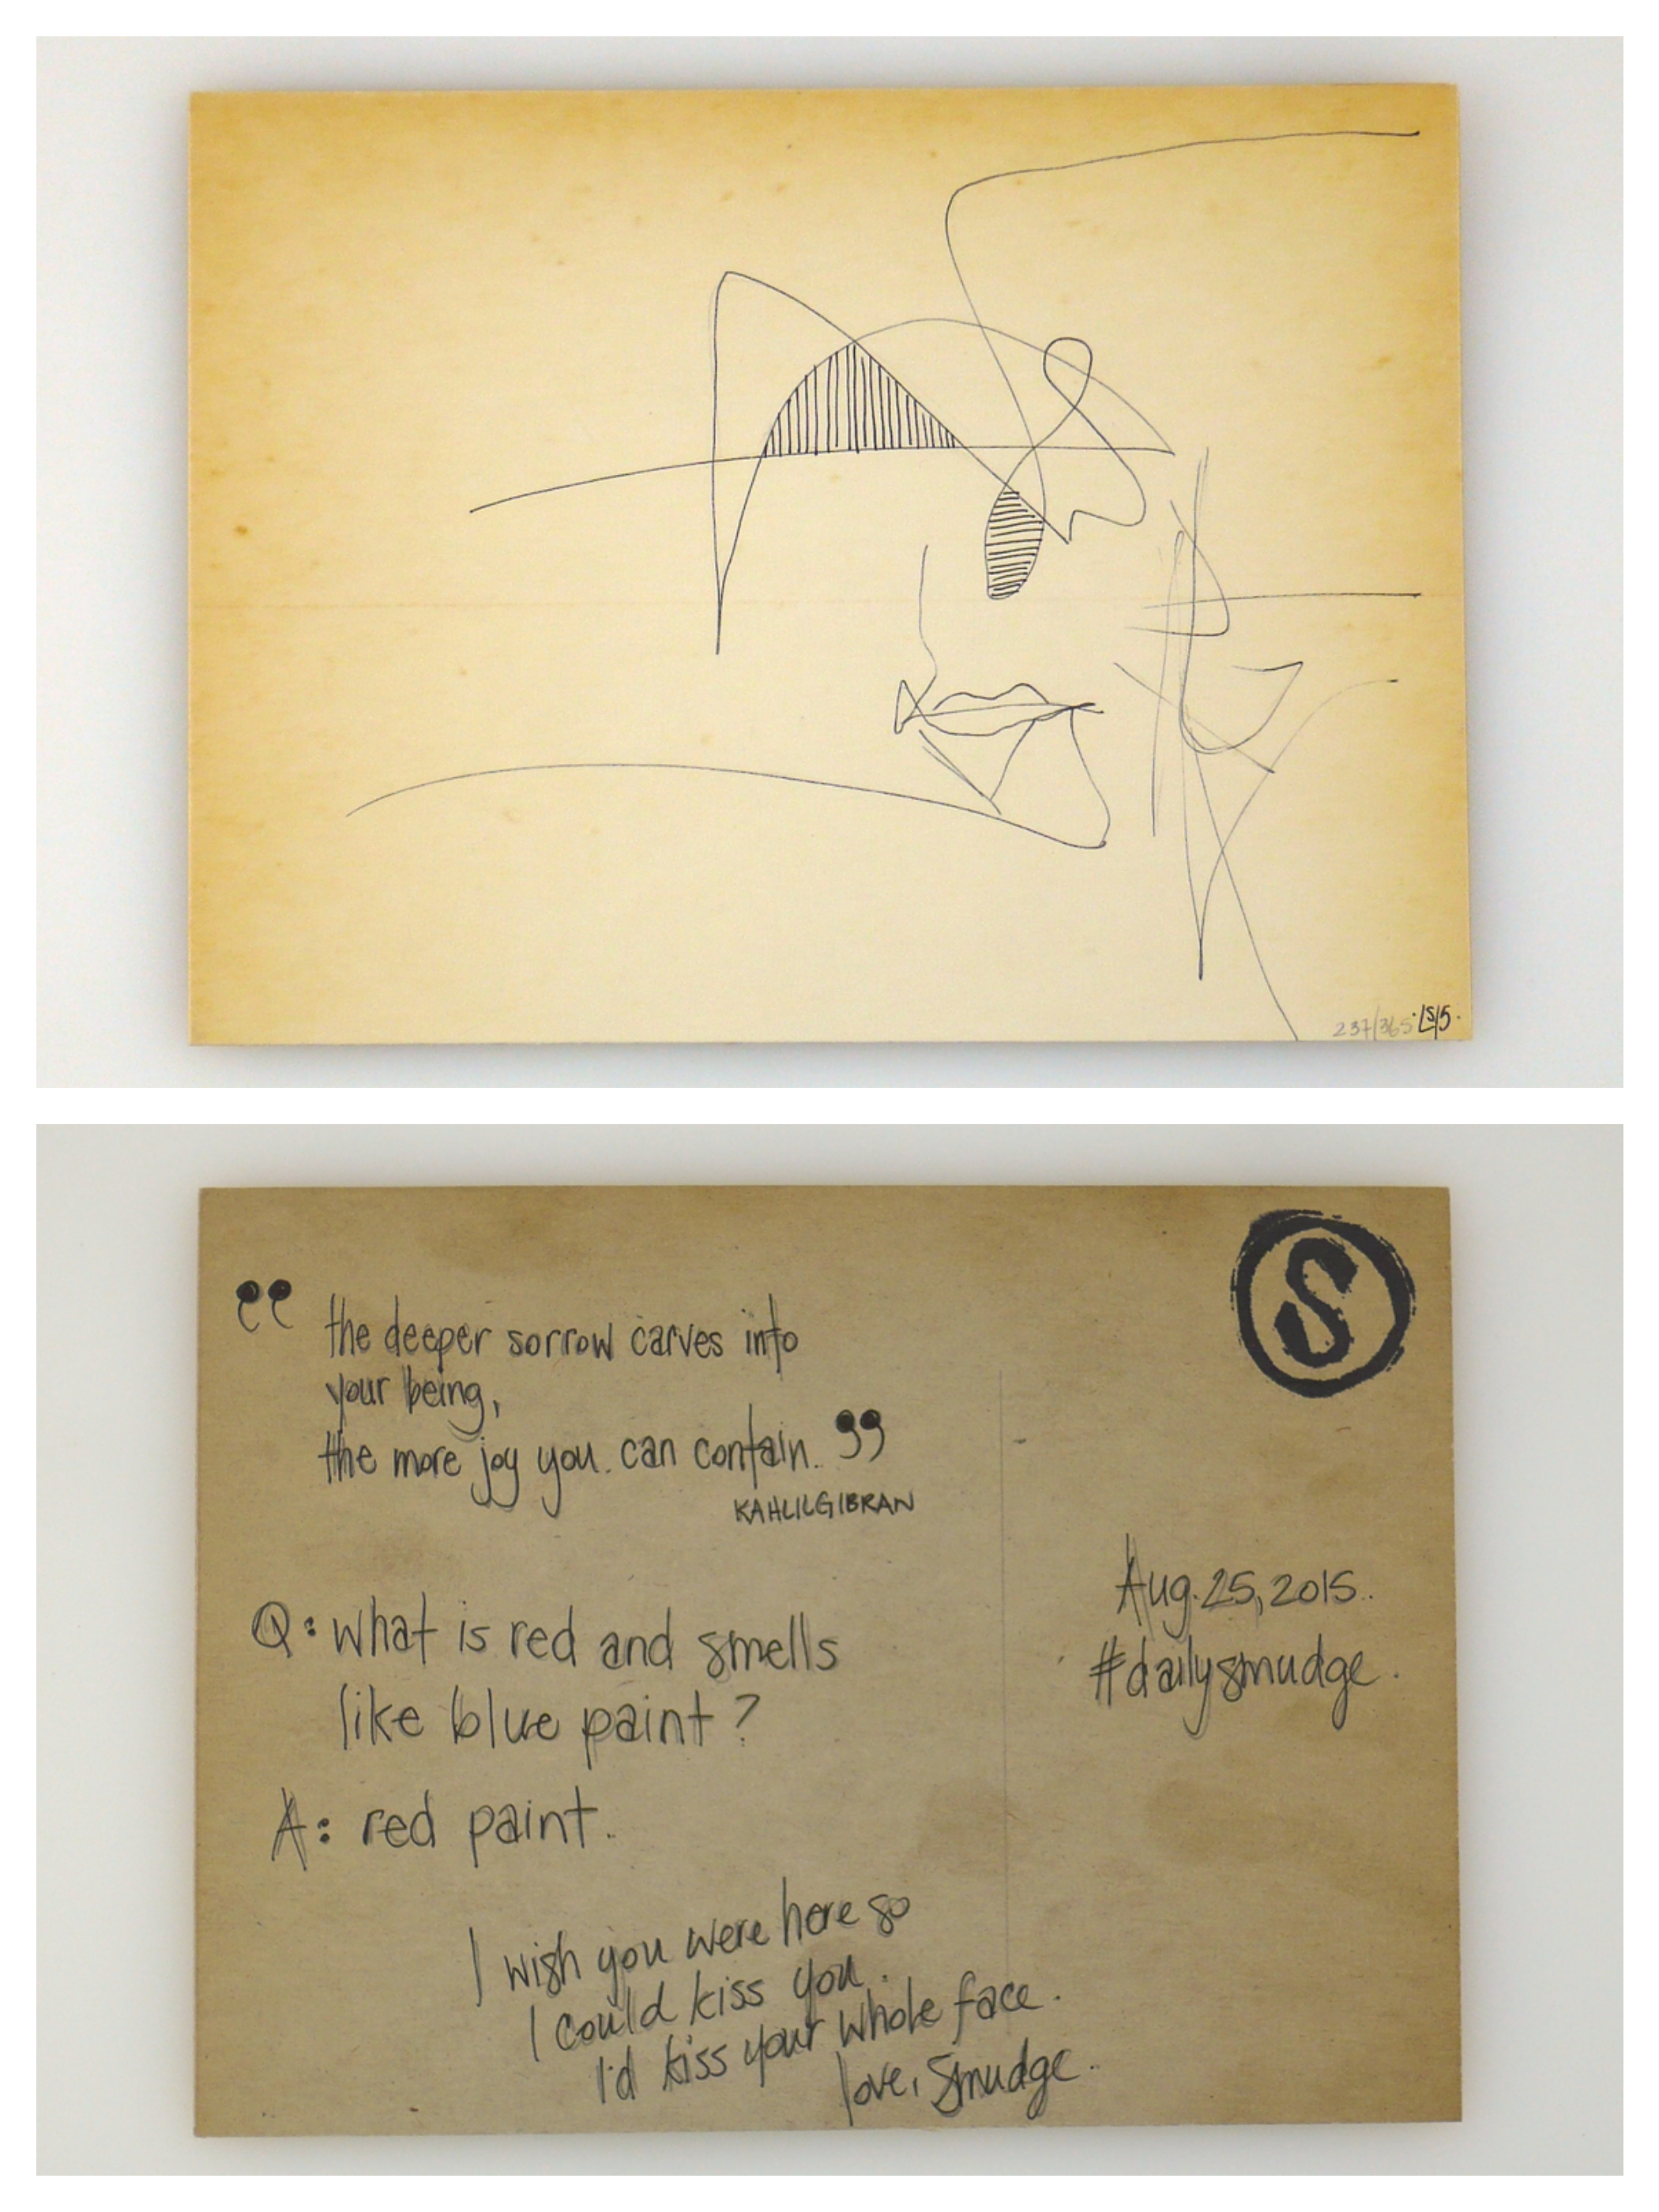 237/365
S
" the deeper sorrow carves into
your being,
the more joy you can contain. "
KAHLIL GIBRAN
Q: what is red and smells
like blue paint?
A: red paint.
I wish you were here so
I could kiss you.
I'd kiss your whole face.
love, Smudge.
Aug. 25, 2015.
#dailysmudge.